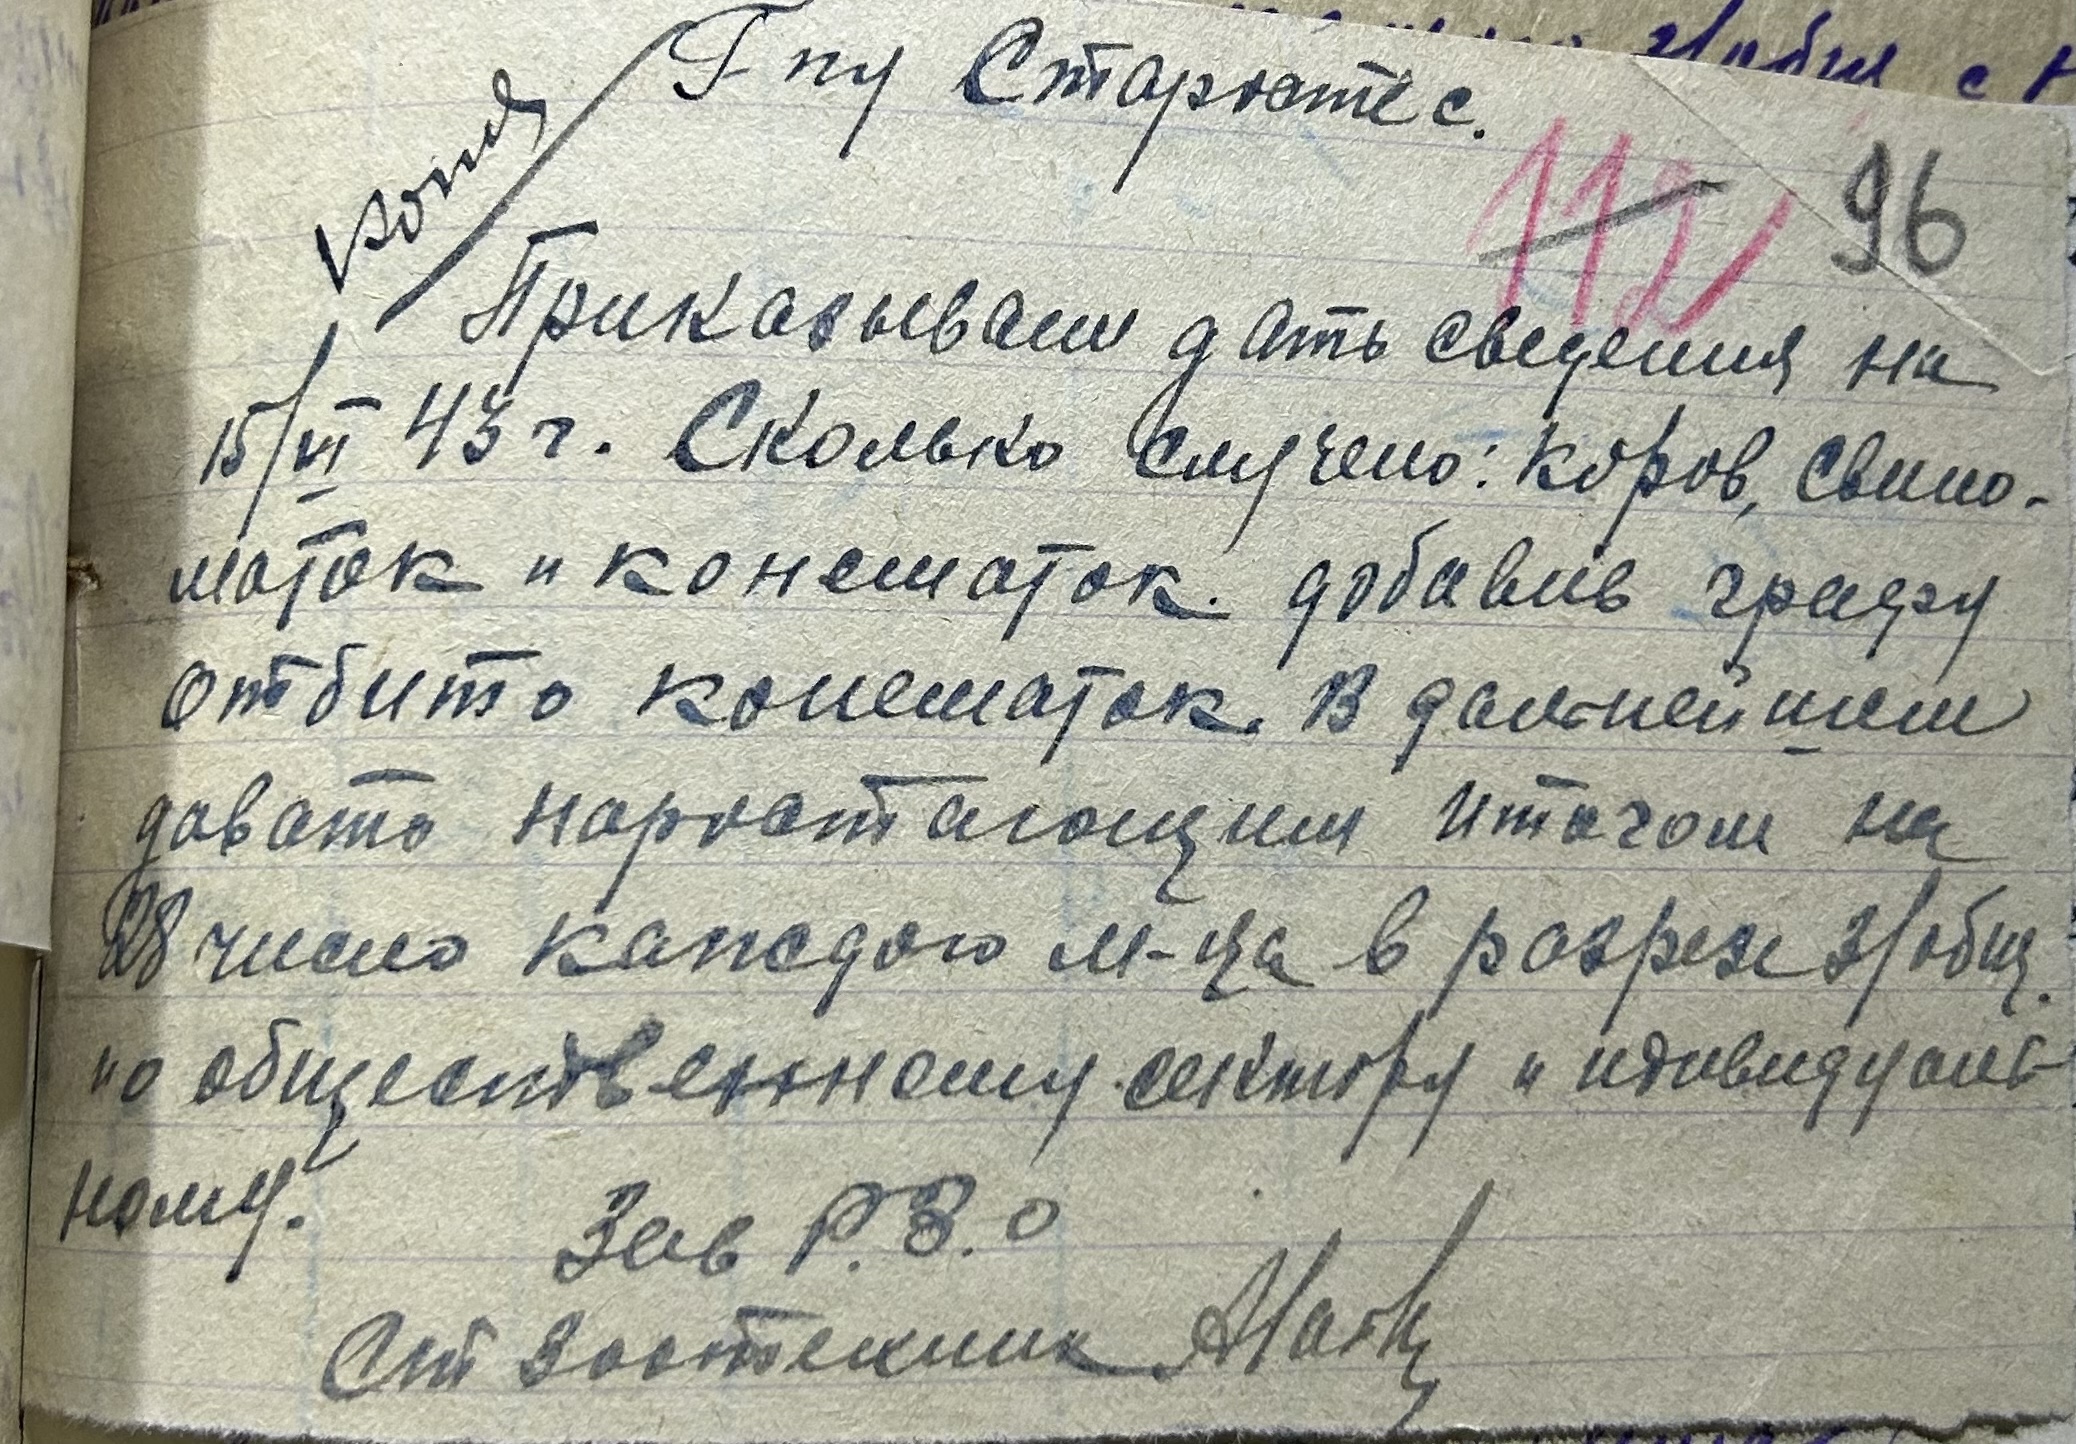 Г-ну Старосте с.
Копия
112 96
Приказываем дать сведения на
15/VI 43 г. Сколько случено: коров, свино-
маток и конематок. добавив графу
отбито конематок. В дальнейшем
давать наростающим итогом на
28 число каждого м-ца в разрезе з/общ.
по общественному сектору и идивидуаль-
ному.
Зав Р.З.О
Ст Зоотехник